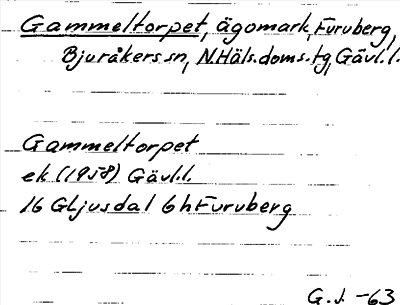 Gammeltorpet, ägomark, Furuberg,
Bjuråkers sn, N.Häls.doms.tg, Gävl.l.
Gammeltorpet
ek (1958) Gävl.l.
16 G Ljusdal 6h Furuberg
G.J. -63